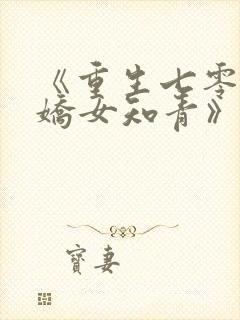 《重生七零
嬌女知青》
寶妻